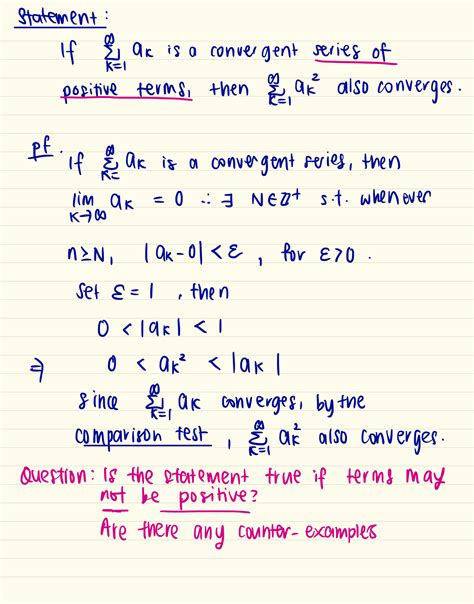 Statement:
If ∞∑k=1 aₖ is a convergent series of
positive terms, then ∞∑k=1 aₖ² also converges.
pf. If ∞∑k= aₖ is a convergent series, then
lim k→∞ aₖ = 0 ∴ ∃ N∈ℤ⁺ s.t. whenever
n≥N, |aₖ-0| < ε, for ε>0.
Set ε = 1, then
0 < |aₖ| < 1
⇒ 0 < aₖ² < |aₖ|
Since ∞∑k=1 aₖ converges, by the
comparison test, ∞∑k=1 aₖ² also converges.
Question: Is the statement true if terms may
not be positive?
Are there any counter-examples